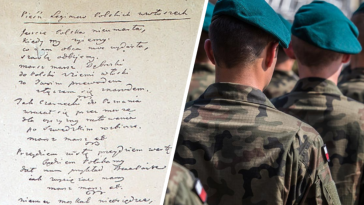 Pieśń Legionów Polskich we Włoszech
Jeszcze Polska nie umarła,
kiedy my żyjemy
co nam obca moc wydarła,
szablą odbijemy.
marsz marsz Dąbrowski
do Polski z ziemi włoski
za Twoim przewodem
złączem się z narodem.
Jak Czarnecki do Poznania
wracał się przez morze
dla ojczyzny ratowania
po szwedzkim rozbiorze.
marsz marsz etc
Przejdziem Wisłę przejdziem Wartę
będziem Polakami
dał nam przykład Bonaparte
jak zwyciężać mamy
marsz marsz etc
niemiec moskal nieosiędzie,